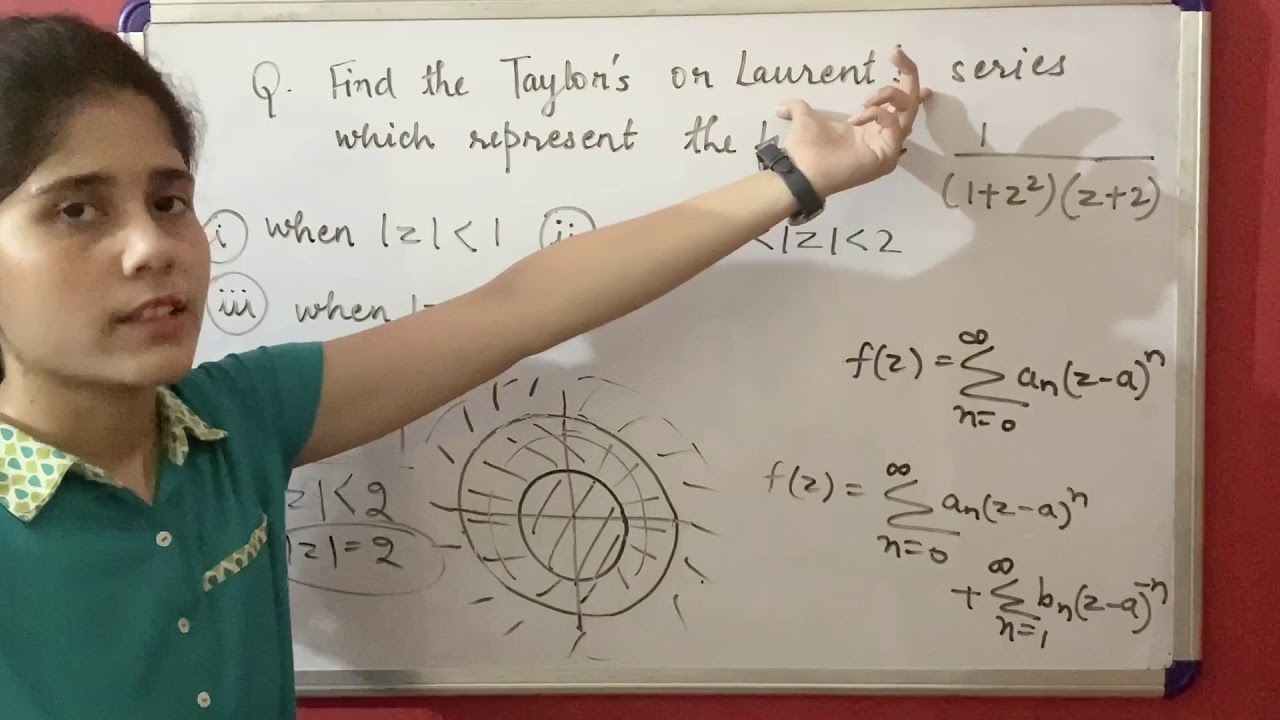 Q. Find the Taylor's or Laurent's series
which represent the
1
(1+z²)(z+2)
(i) when |z|<1 (ii) <|z|<2
(iii) when |z
f(z) = ∞ Σ n=0 aₙ(z-a)ⁿ
|z|<2
|z|=2
f(z) = ∞ Σ n=0 aₙ(z-a)ⁿ
+ ∞ Σ n=1 bₙ(z-a)⁻ⁿ